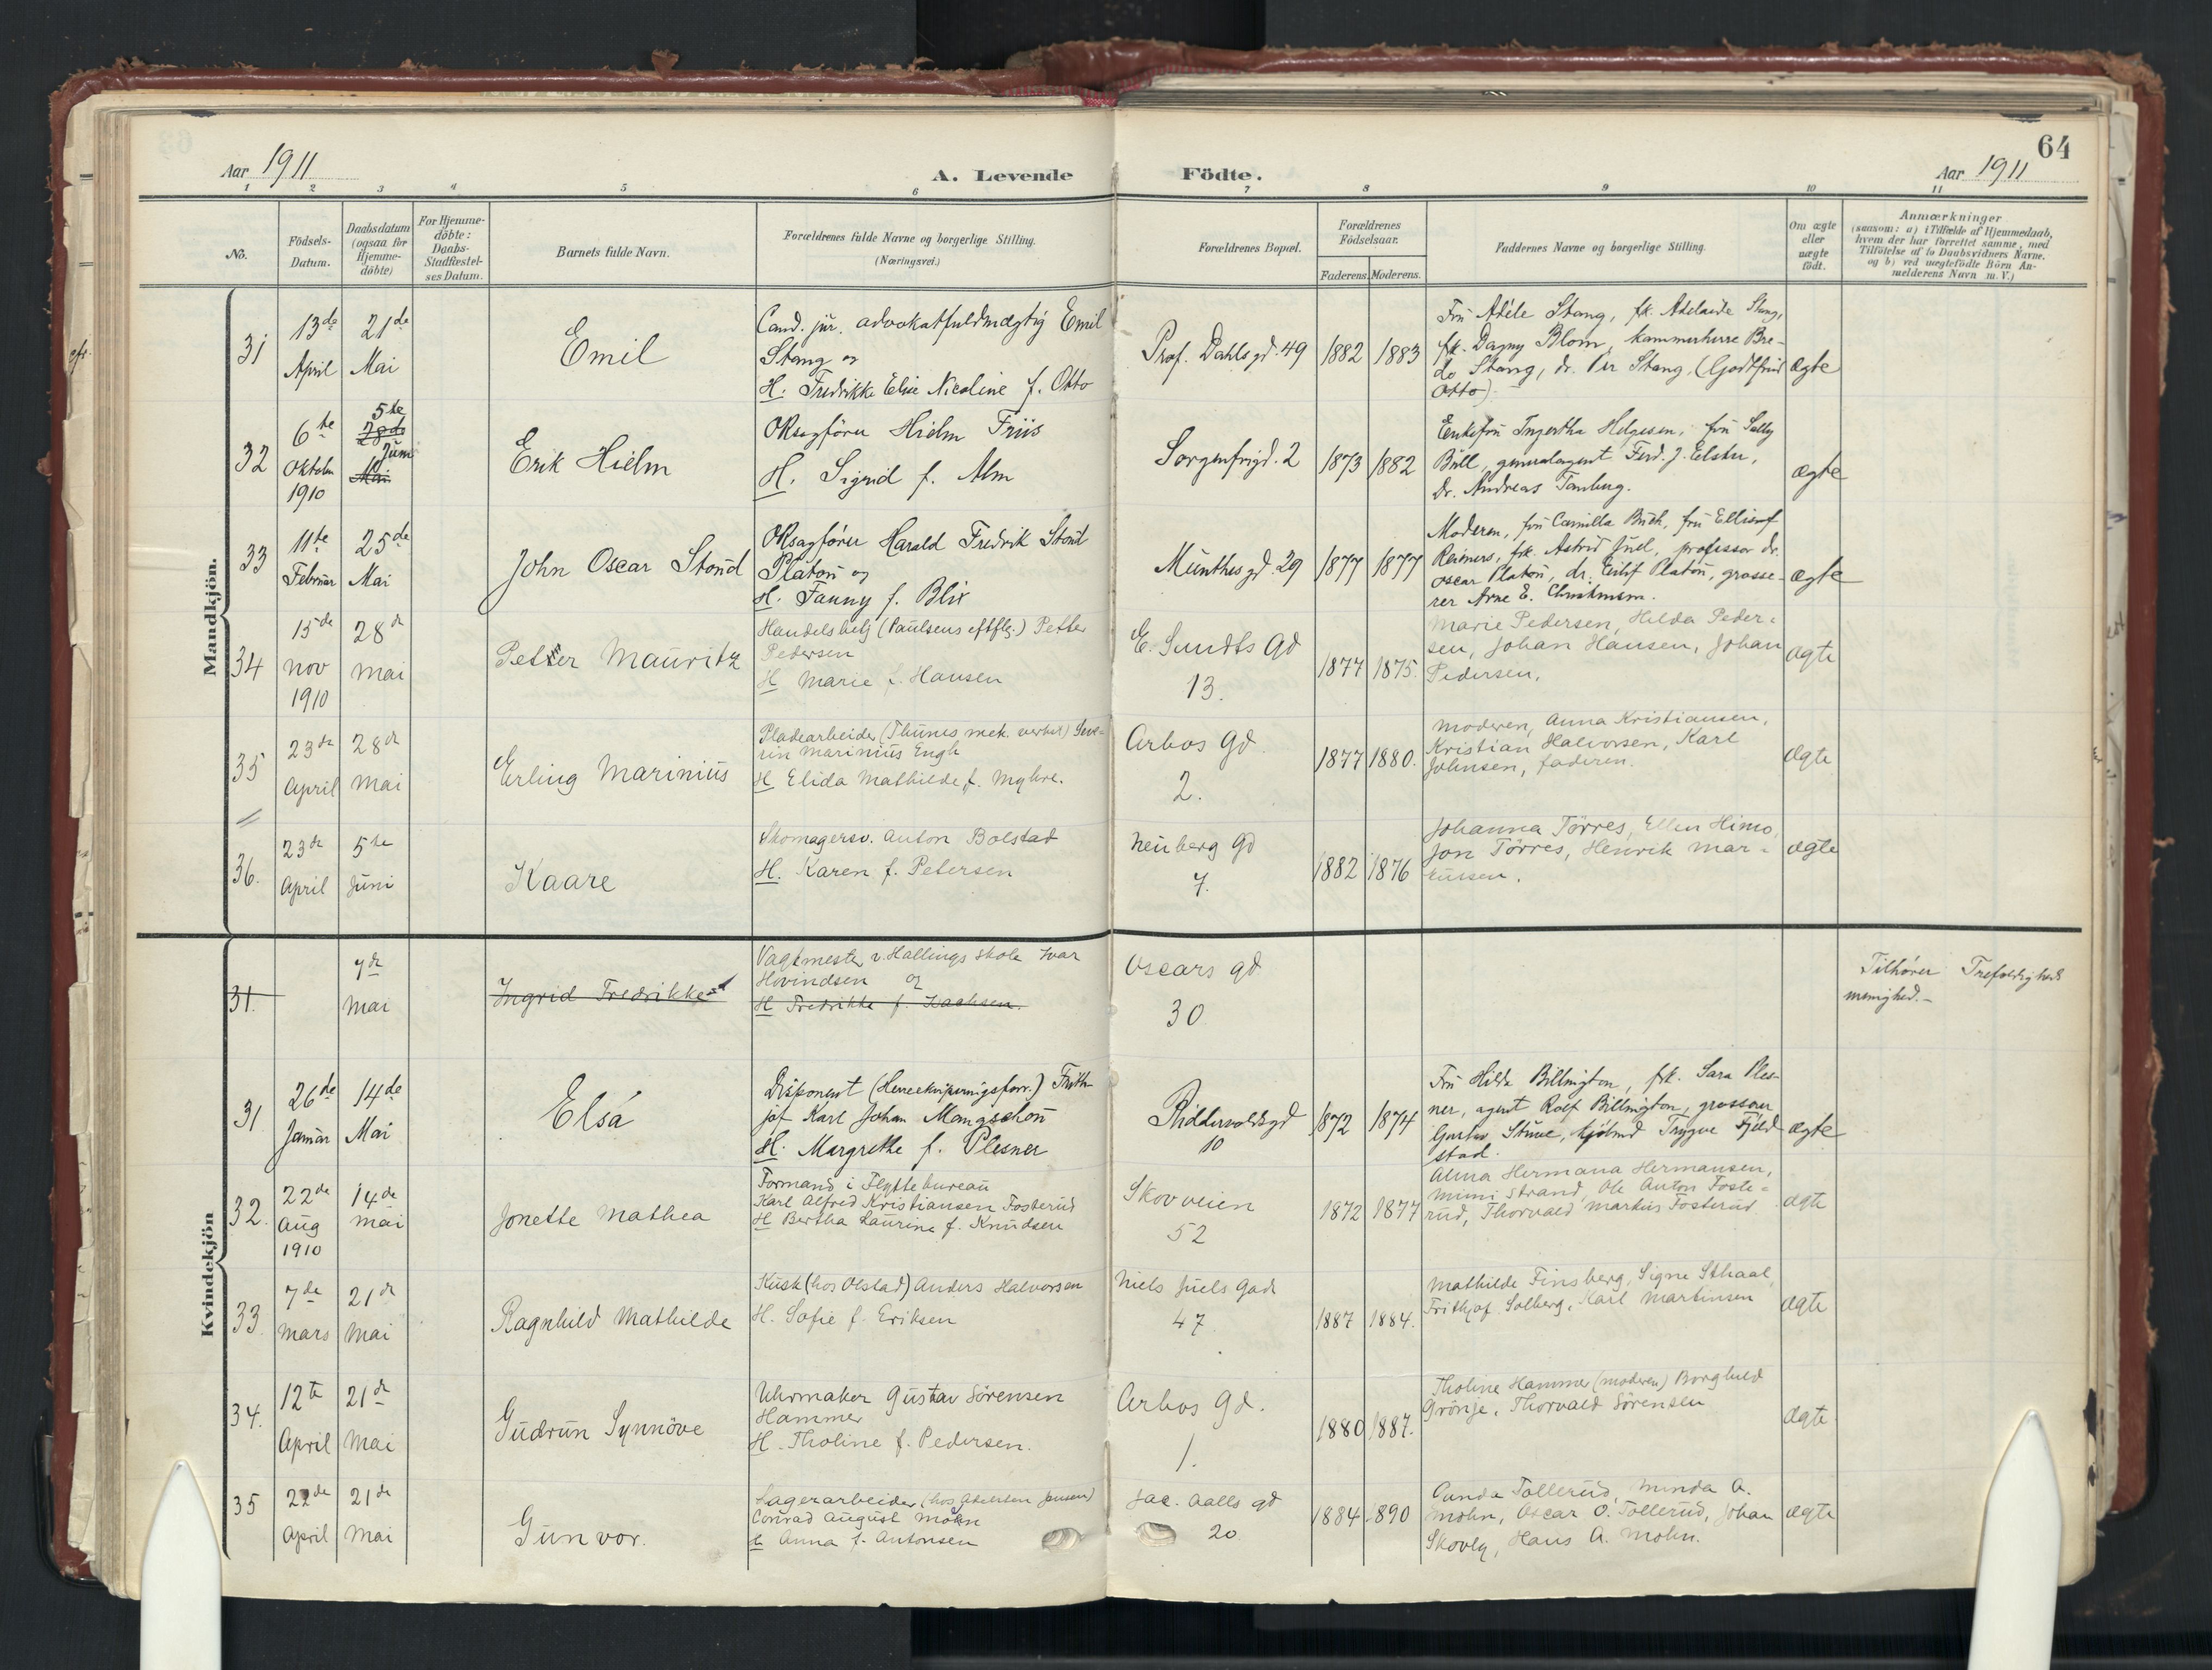 64
Aar 1911
A. Levende Födte.
Aar 1911
1 2 3 4 5 6 7 8 9 10 11
No.
Födsels-Datum.
Daabsdatum (ogsaa for Hjemme-döbte)
For Hjemme-döbte: Daabs-Stadfæstel-ses Datum.
Barnets fulde Navn.
Forældrenes fulde Navne og borgerlige Stilling.
(Næringsvei.)
Forældrenes Bopæl.
Forældrenes Födselsaar.
Faderens. Moderens.
Faddernes Navne og borgerlige Stilling.
Om ægte eller uægte födt.
Anmærkninger
(saasom: a) i Tilfælde af Hjemmedaab,
hvem der har forrettet samme, med
Tilföielse af to Daabsvidners Navne,
og b) ved uægtefödte Börn An-
melderens Navn m. V.)
Mandkjön.
31
13de April
21de Mai
Emil
Cand. jur. advokatfuldmægtig Emil
Stang og
H. Fredrikke Elise Nicoline f. Otto
Prof. Dahls gd. 49
1882 1883
Fru Adéle Stang, frk. Adelaide Stang,
frk. Dagny Blom, kammerherre Bre-
do Stang, dr. Per Stang, (Godtfred
Otto)
ægte
32
6te Oktober 1910
5te 28de Juni Mai
Erik Hielm
ORsagfører Hielm Friis
H. Sigrid f. Alm
Sorgenfrigd. 2
1873 1882
Enkefru Ingertha Helgesen, fru Sally
Bull, generalagent Ferd. J. Elster,
Dr. Andreas Tanberg.
ægte
33
11te Februar
25de Mai
John Oscar Stoud
ORsagfører Harald Fredrik Stoud
Platou og
H. Fanny f. Blix
Munthes gd. 29
1877 1877
Moderen, fru Camilla Buch, fru Ellinof
Reimers, frk. Astrid Juel, professor dr.
Oscar Platou, dr. Eilif Platou, grosse-
rer Arne E. Christensen.
ægte
34
15de nov 1910
28d mai
Petter Mauritz
Handelsbetj (Paulsens eftflg.) Petter
Pedersen
H Marie f. Hansen
E. Sundts Gd
13.
1877 1875.
Marie Pedersen, Hilda Peder-
sen, Johan Hansen, Johan
Pedersen,
ægte
35
23de April
28de Mai
Erling Marinius
Pladearbeider (Thunes mek. verkst) Seve-
rin Marinius Engh
H Elida Mathilde f. Myhre.
Arbos Gd.
2.
1877 1880.
Moderen, Anna Kristiansen,
Kristian Halvorsen, Karl
Johnsen, faderen.
ægte
36.
23de April
5te Juni
Kaare
Skomagersv. Anton Bolstad
H. Karen f. Petersen
Neuberg Gd
7.
1882 1876
Johanna Törres, Ellen Himo,
Jon Törres, Henrik Mar-
ægte
Kvindekjön
31.
7de Mai
Ingrid Fredrikke
Vagtmester v. Hallings skole Ivar
Hovindsen og
H Fredrikke f. Isachsen.
Oscars gd
30
Tilhører Trefoldigheds
menighed.-
31
26de Januar
14de Mai
Elsa
Disponent (Herreekviperingsforr.) Frith-
jof Karl Johan Mangschou
H. Margrethe f. Plesner
Riddervoldsgd
10
1872 1874
Fru Hilda Billington, frk. Sara Ples-
ner, agent Rolf Billington, grosserer
Gustav Stuve, kjöbmd Trygve Fjeld-
stad.
ægte
32.
22de Aug 1910
14de mai
Jonette Mathea
Formand i Flyttebureau
Karl Alfred Kristiansen Fosterud
H Bertha Laurine f. Knudsen
Skovveien
52
1872 1877
Alma Hermana Hermansen,
Mimi Strand, Ole Anton Foste-
rud, Thorvald Markus Fosterud
ægte
33.
7de Mars
21de Mai
Ragnhild Mathilde
Kusk (hos Olstad) Anders Halvorsen
H. Sofie f. Eriksen
Niels Juels Gade
47
1887 1884.
Mathilde Finsberg, Signe Sthaal,
Frithjof Solberg, Karl Martinsen
ægte
34.
12te April
21de Mai
Gudrun Synnöve
Uhrmaker Gustav Sörensen
Hammer
H. Tholine f. Pedersen.
Arbos Gd.
1.
1880 1887.
Tholine Hammer (moderen) Borghild
Grönje, Thorvald Sörensen
ægte
35
22de April
21de Mai
Gunvor.
Lagerarbeider (hos Jensen)
Conrad August Mohn
H Anna f. Antonsen
Jac. Aalls gd
20.
1884 1890
Gunda Tollerud, Minda A.
Mohn, Oscar O. Tollerud, Johan
Skovly, Hans A. Mohn.
ægte